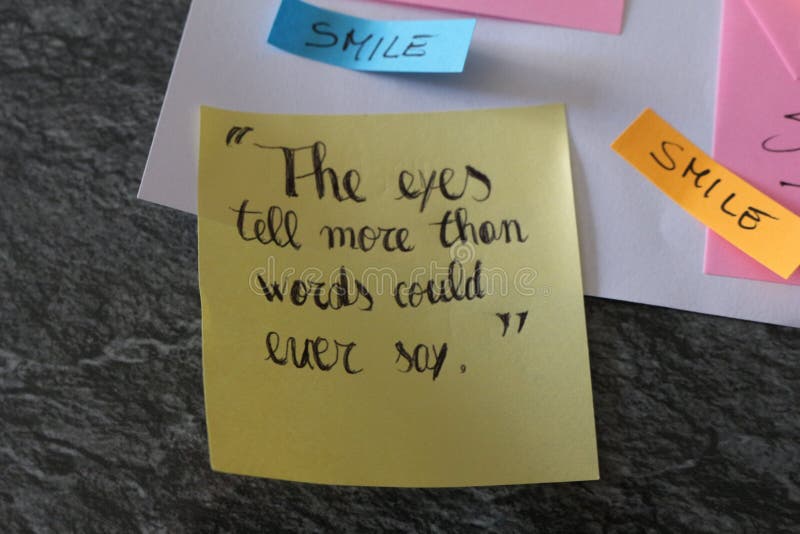 SMILE
SMILE
"The eyes
tell more than
words could
ever say."